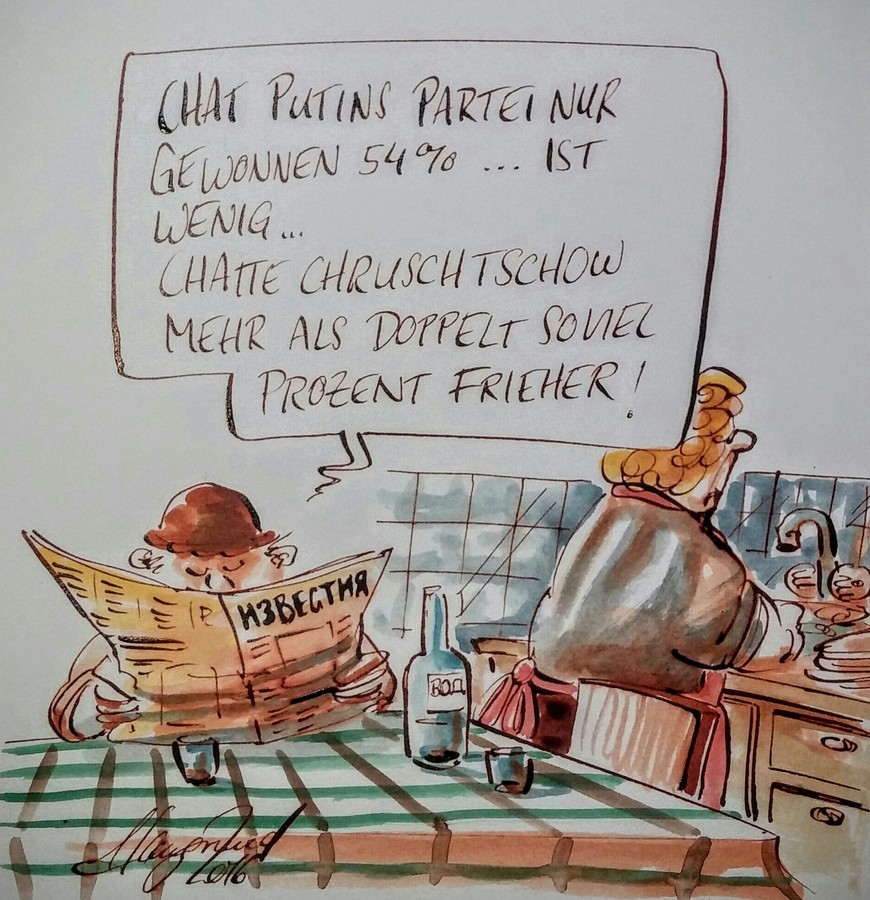 CHAT PUTINS PARTEI NUR
GEWONNEN 54% ... IST
WENIG...
CHATTE CHRUSCHTSCHOW
MEHR ALS DOPPELT SOVIEL
PROZENT FRIEHER!
ИЗВЕСТИЯ
ВОД
2016